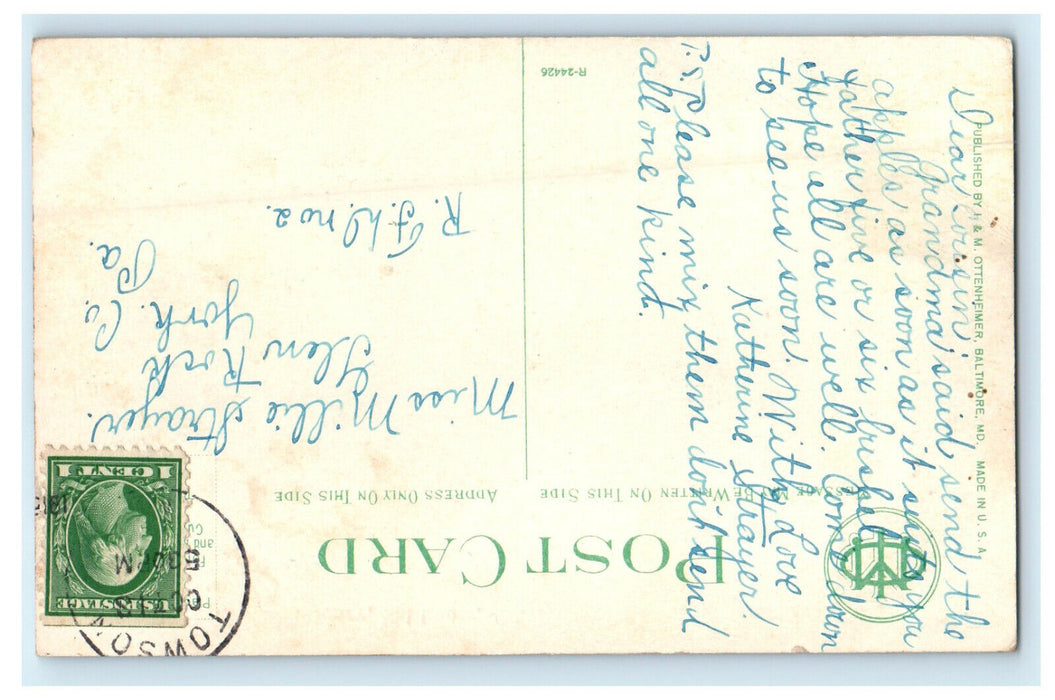 POST CARD
MESSAGE MAY BE WRITTEN ON THIS SIDE
ADDRESS ONLY ON THIS SIDE
PUBLISHED BY I. & M. OTTENHEIMER, BALTIMORE, MD. MADE IN U.S.A.
R-24426
Dear Cousin,
Grandma said send the
apples as soon as it suits you
Father five or six bushel.
Hope all are well. Come down
to see us soon. With Love
Katherine Strayer.
P.S. Please mix them don't send
all one kind.
U.S. POSTAGE
1 CENT 1
TOWSON
OCT 13
5 00 PM
Miss Millie Strayer.
Glen Rock
York. Co.
Pa.
R.F.D. no 2.